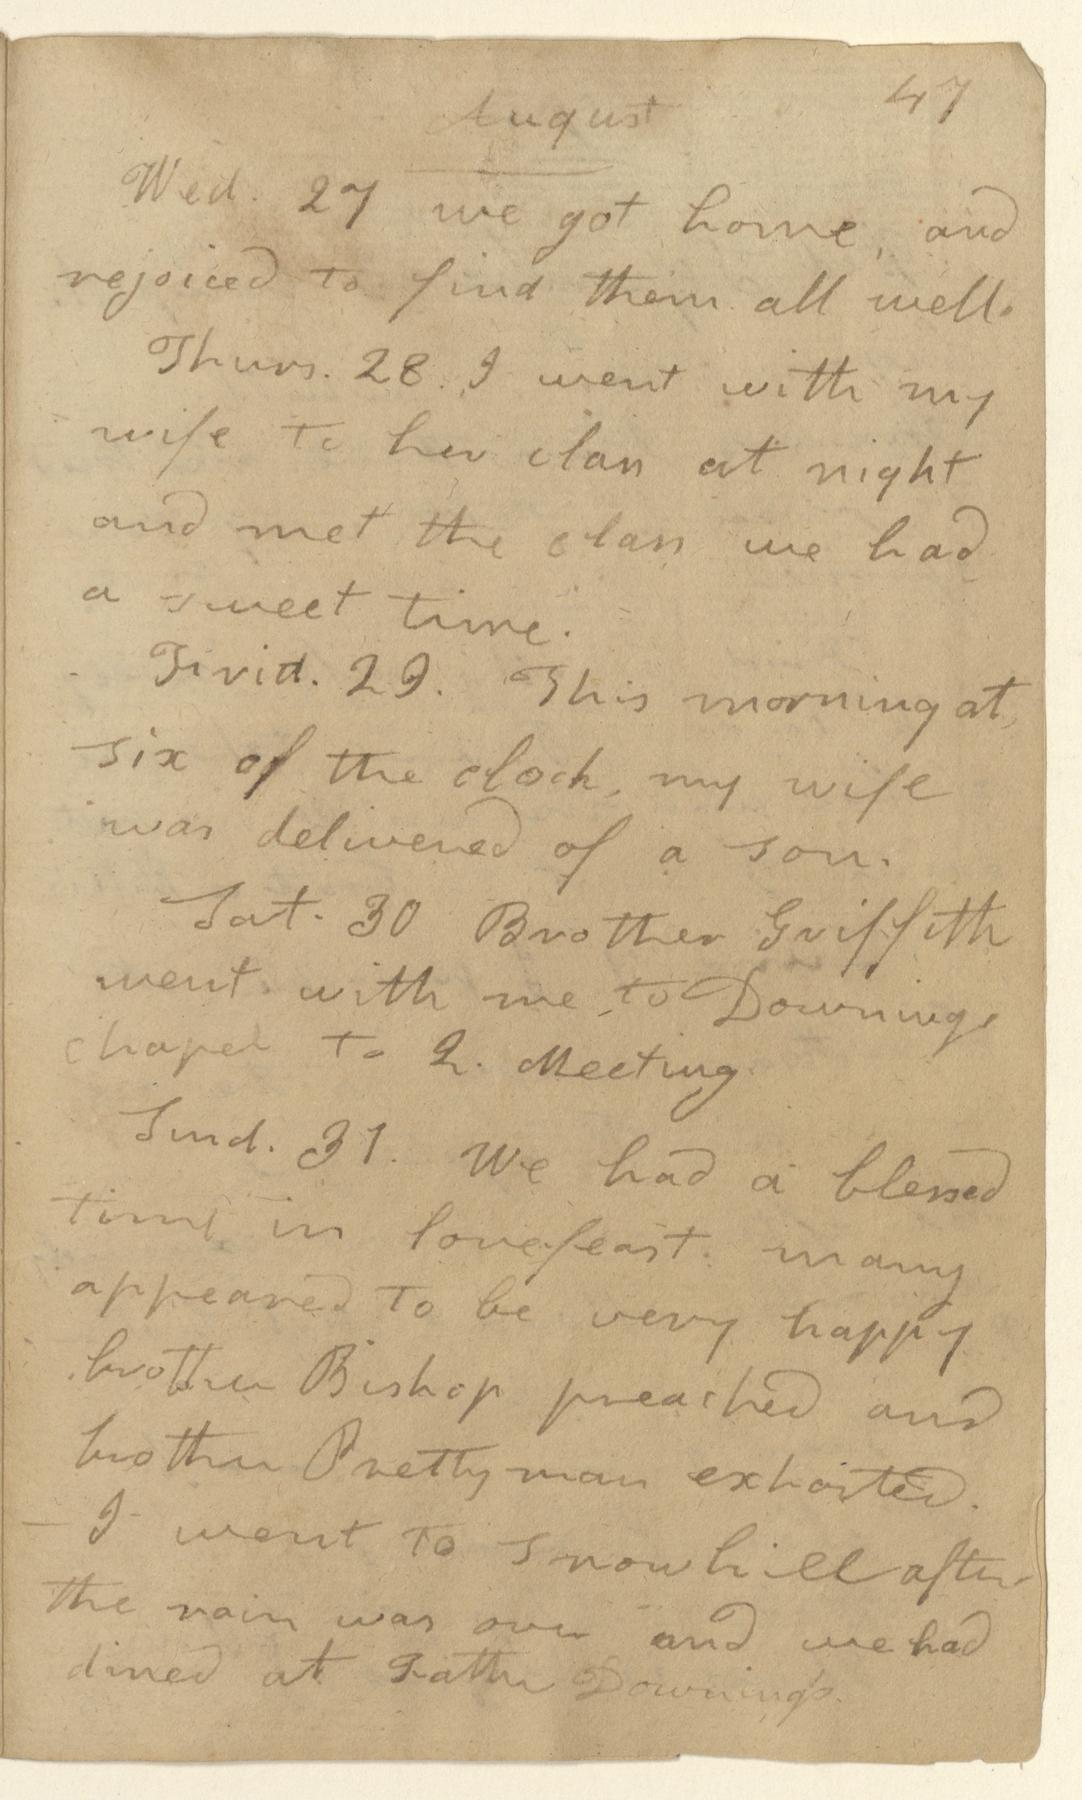 47
August
Wed. 27 we got home, and
rejoiced to find them all well.
Thurs. 28. I went with my
wife to her class at night
and met the class we had
a sweet time.
Frid. 29. This morning at
six of the clock, my wife
was delivered of a son.
Sat. 30 Brother Griffith
went with me to Downings
chapel to Q. Meeting
Sund. 31. We had a blessed
time in lovefeast. many
appeared to be very happy
brother Bishop preached and
brother Prettyman exhorted.
— I went to Snowhill after
the rain was over and we had
dined at Father Downings.